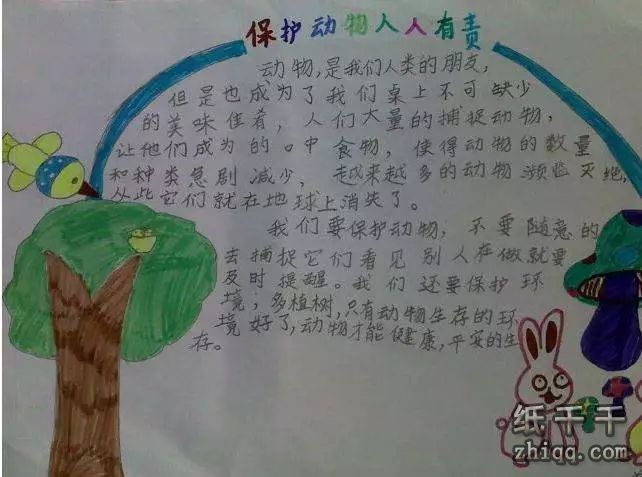 保护动物人人有责
动物,是我们人类的朋友,
但是也成为了我们桌上不可缺少
的美味佳肴,人们大量的捕捉动物,
让他们成为的口中食物,使得动物的数量
和种类急剧减少,越来越多的动物濒临灭绝,
从此它们就在地球上消失了。
我们要保护动物,不要随意的
去捕捉它们看见别人在做就要
及时提醒。我们还要保护环
境;多植树,只有动物生存的环
境好了,动物才能健康,平安的生
存。
纸千千
zhiqq.com